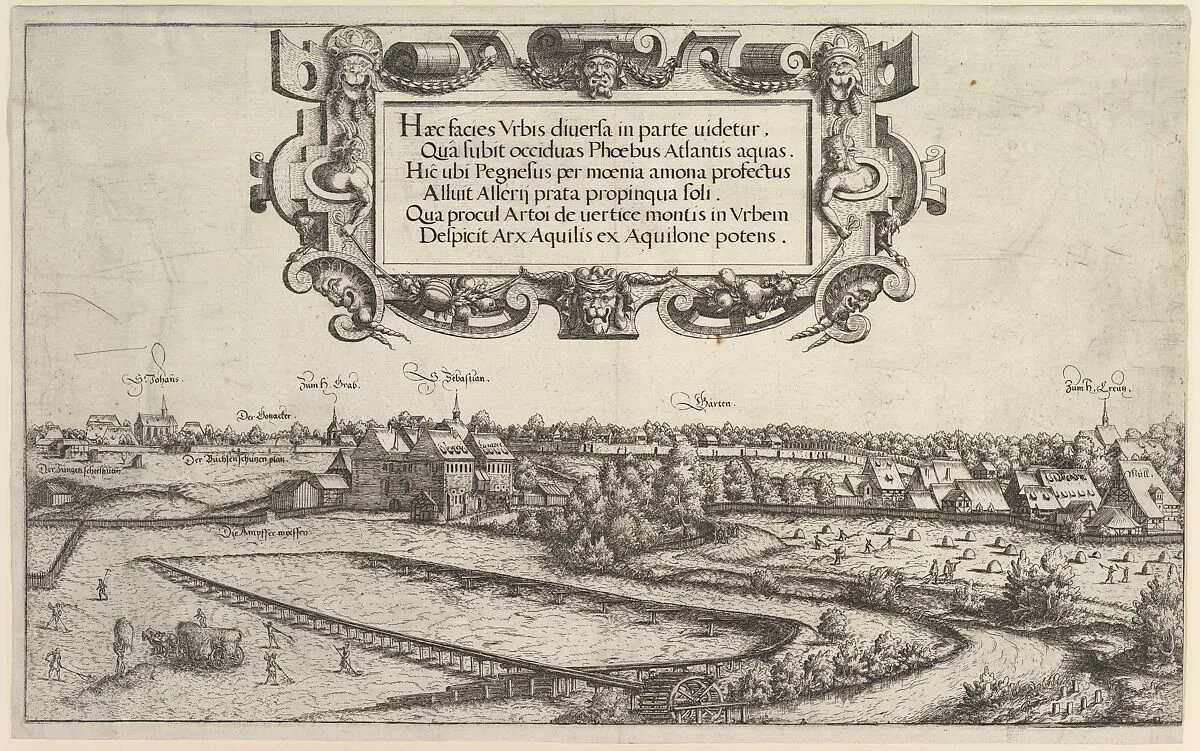 Hæc facies Vrbis diuersa in parte uidetur,
Quâ subit occiduas Phœbus Atlantis aquas.
Hîc ubi Pegnesus per mœnia amœna profectus
Alluit Allerij prata propinqua soli.
Qua procul Artoi de uertice montis in Vrbem
Despicit Arx Aquilis ex Aquilone potens.
S. Johans.
Zum H. Grab.
S. Sebastian.
Gärten.
Zum H. Creutz.
Der Gotzacker.
Der Büchsenschützen platz
Der Jungen schieshütten
Die Ampffer wyessen